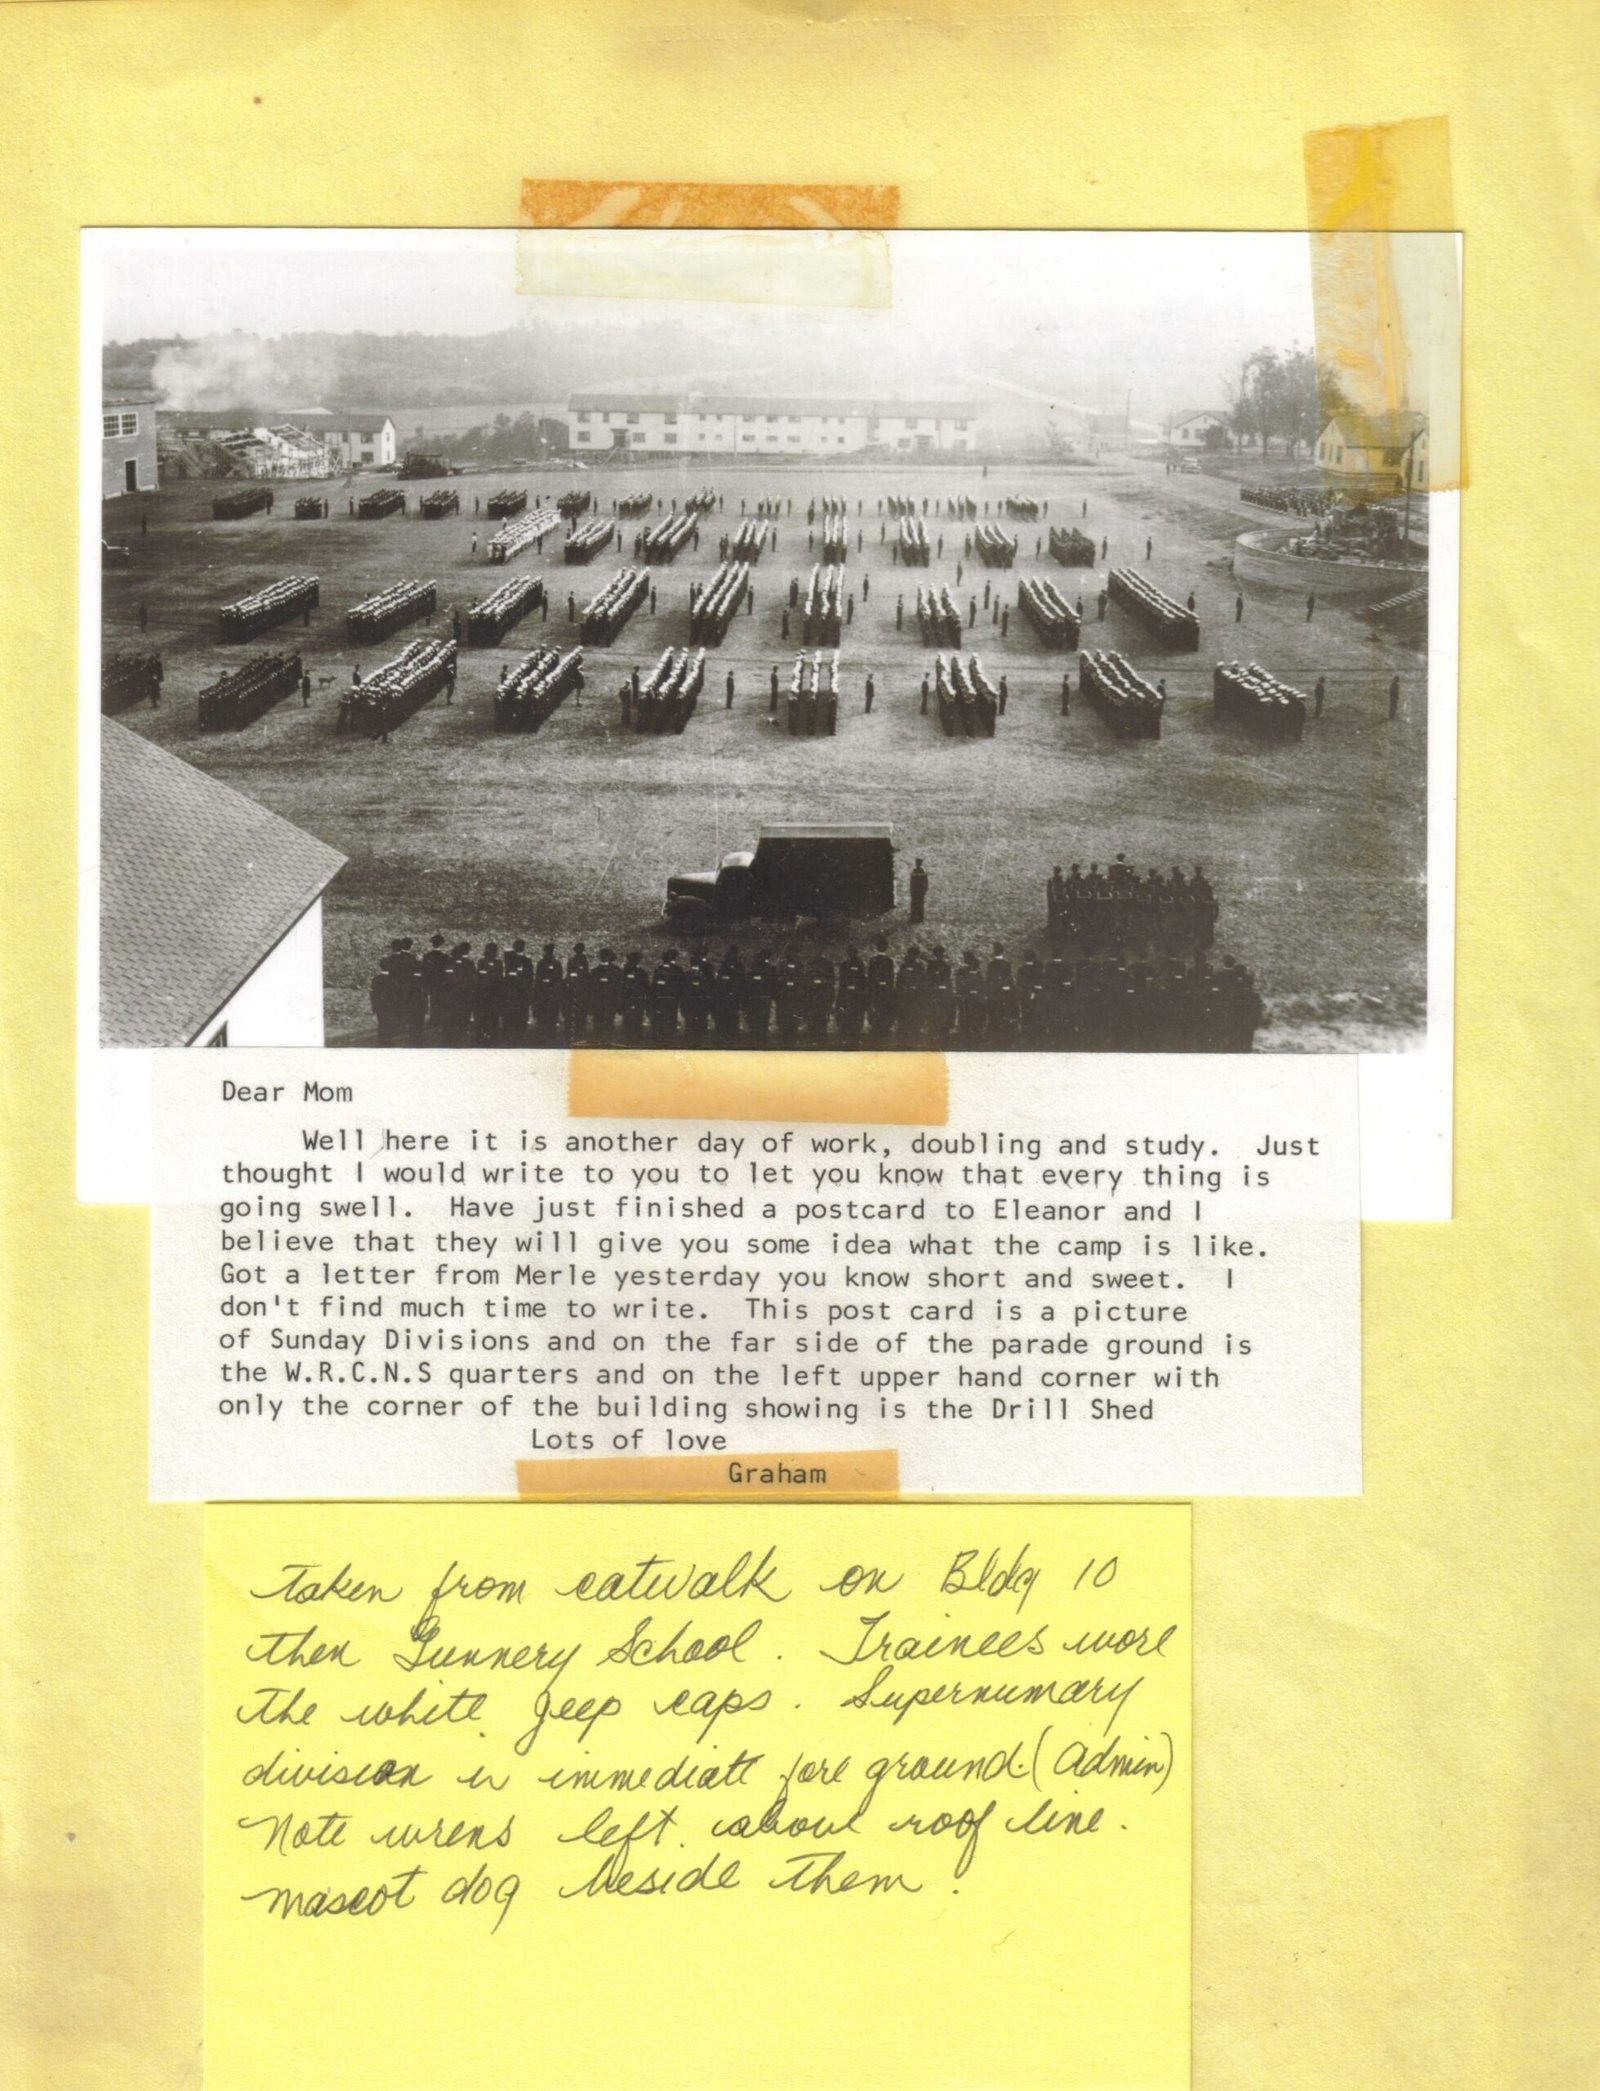 Dear Mom
Well here it is another day of work, doubling and study. Just
thought I would write to you to let you know that every thing is
going swell. Have just finished a postcard to Eleanor and I
believe that they will give you some idea what the camp is like.
Got a letter from Merle yesterday you know short and sweet. I
don't find much time to write. This post card is a picture
of Sunday Divisions and on the far side of the parade ground is
the W.R.C.N.S quarters and on the left upper hand corner with
only the corner of the building showing is the Drill Shed
Lots of love
Graham
taken from catwalk on Bldg 10
then Gunnery School. Trainees wore
the white jeep caps. Supernumary
division is immediate fore ground. (Admin)
Note wrens left. above roof line.
mascot dog beside them.